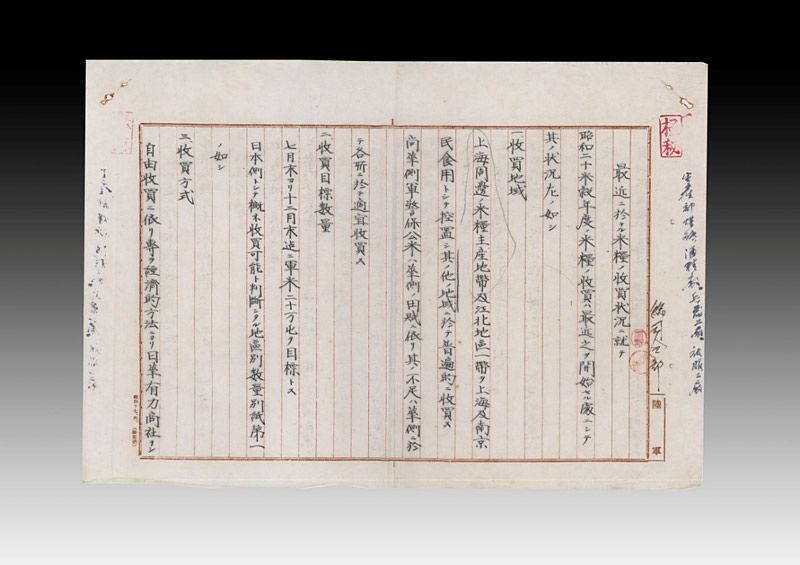 極秘
最近ニ於ケル米糧ノ收買狀況ニ就テ
昭和二十米穀年度ノ米糧ノ收買ハ最近之ヲ開始セル處ニシテ
其ノ狀況左ノ如シ
一 收買地域
上海周邊ノ米糧主産地帶及江北地區一帶ヲ上海及南京
民食用トシテ控置シ其ノ他ノ地域ニ於テ普遍的ニ收買ス
尚華側軍警保公米ハ華側ノ田賦ニ依リ其ノ不足ハ華側ニ於
テ各所ニ於テ適宜收買ス
二 收買目標數量
七月末ヨリ十二月末迄ニ軍米二十万屯ヲ目標トス
日本側トシテ概ネ收買可能ト判斷シタル地區別數量別紙第一
ノ如シ
三 收買方式
自由收買ニ依リ專ラ經濟的方法ニヨリ日華有力商社ヲシ
陸軍